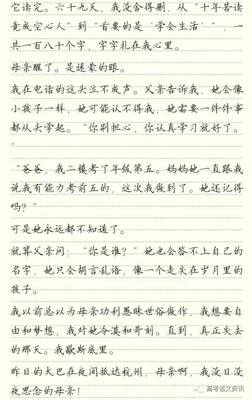 它读完。六十九天，我没舍得删，从“十年苦读
竟成空心人”到“首要的是‘学会生活’”，一
共一百八十个字，字字扎在我心里。
母亲醒了。是迷蒙的眼。
我在电话的这头泣不成声。父亲告诉我，她会像
小孩子一样，她可能认不得我，她需要一件件事
都从头学起。“你别担心，你认真学习就好了。
”
“爸爸，我二模考了年级第五。妈妈她一直跟我
说我有能力考前五的，这次我做到了。她还记得
吗？”
可是她永远都不知道了。
就算父亲问：“你是谁？”她也会答不上自己的
名字，她只会胡言乱语，像一个走失在岁月里的
孩子。
我以前总以为母亲功利愚昧世俗做作，我想要自
由和梦想，我对她冷漠和苛刻。直到，真正失去
的那天。我歇斯底里。
昨日的大巴在夜间抵达杭州，母亲啊，我没日没
夜思念的母亲！
高考语文资讯